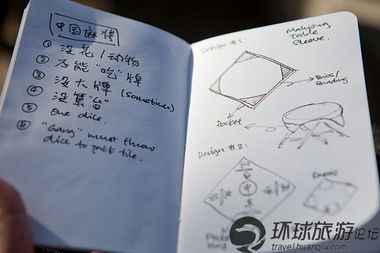 中国麻牌
① 没花 / 动物
② 不能"吃"牌
③ 没大牌 (sometimes)
④ 没算"台"
⑤ One dice.
⑥ "Gang" must throw
dice to pick tile.
Design #1:
Mahjong
Table
Bias/
Binding
Pocket
Design #2:
环球旅游论坛
travel.huanqiu.com